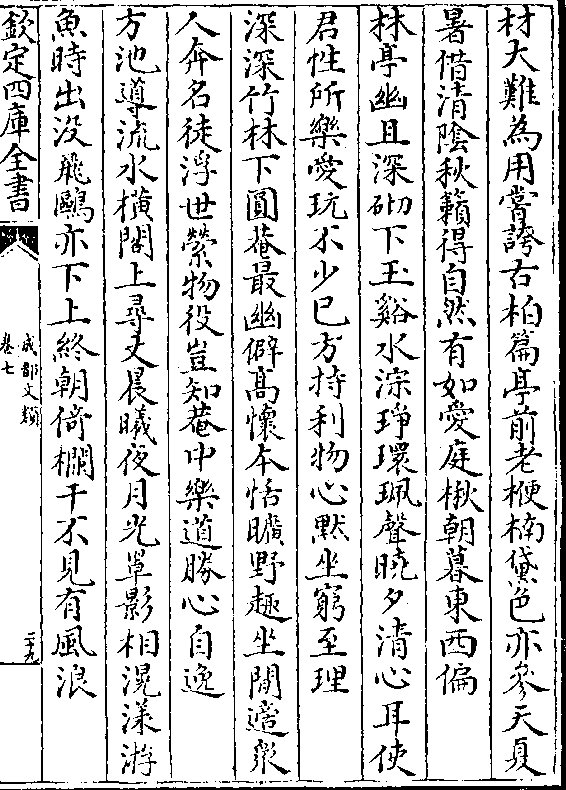 材大難為用嘗誇古柏篇亭前老楩楠黛色亦參天夏
暑借清陰秋籟得自然有如愛庭楸朝暮東西偏
林亭幽且深砌下玉谿水淙琤環珮聲曉夕清心耳使
君性所樂愛玩不少已方持利物心默坐窮至理
深深竹林下圓菴最幽僻髙懷本恬曠野趣坐閒適衆
人奔名徒浮世縈物役豈知菴中樂道勝心自逸
方池導流水橫閣上尋丈晨曦夜月光單影相滉漾游
魚時出没飛鷗亦下上終朝倚欄干不見有風浪
欽定四庫全書
成都文類
卷七
二九